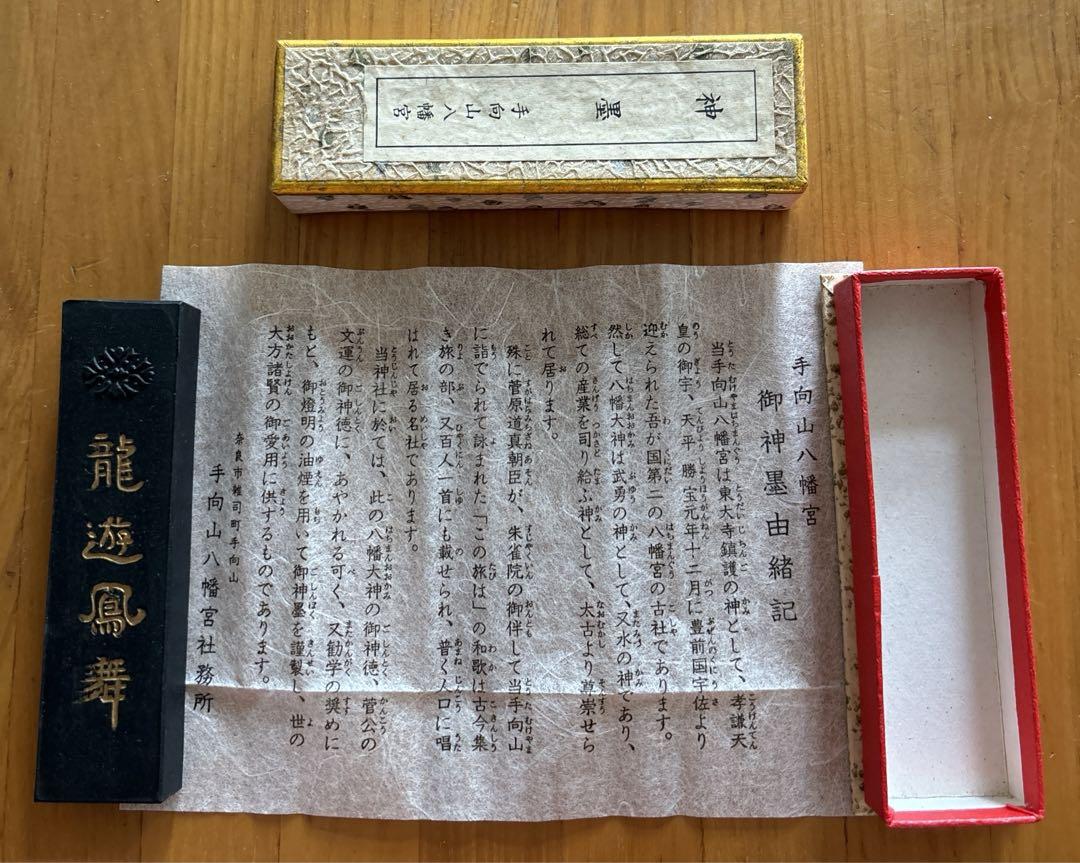 神墨
手向山八幡宮
手向山八幡宮
御神墨由緒記
当手向山八幡宮は東大寺鎮護の神として、孝謙天
皇の御宇、天平勝宝元年十二月に豊前国宇佐より
迎えられた吾が国第二の八幡宮の古社であります。
然して八幡大神は武勇の神として、又水の神であり、
総ての産業を司り給ふ神として、太古より尊崇せら
れて居ります。
殊に菅原道真朝臣が、朱雀院の御伴して当手向山
に詣でられて詠まれた「この旅は」の和歌は古今集
き旅の部、又百人一首にも載せられ、普く人口に唱
はれて居る名社であります。
当神社に於ては、此の八幡大神の御神徳、菅公の
文運の御神徳に、あやかれる可く、又勧学の奨めに
もと、御燈明の油煙を用いて御神墨を謹製し、世の
大方諸賢の御愛用に供するものであります。
奈良市雑司町手向山
手向山八幡宮社務所
龍遊鳳舞